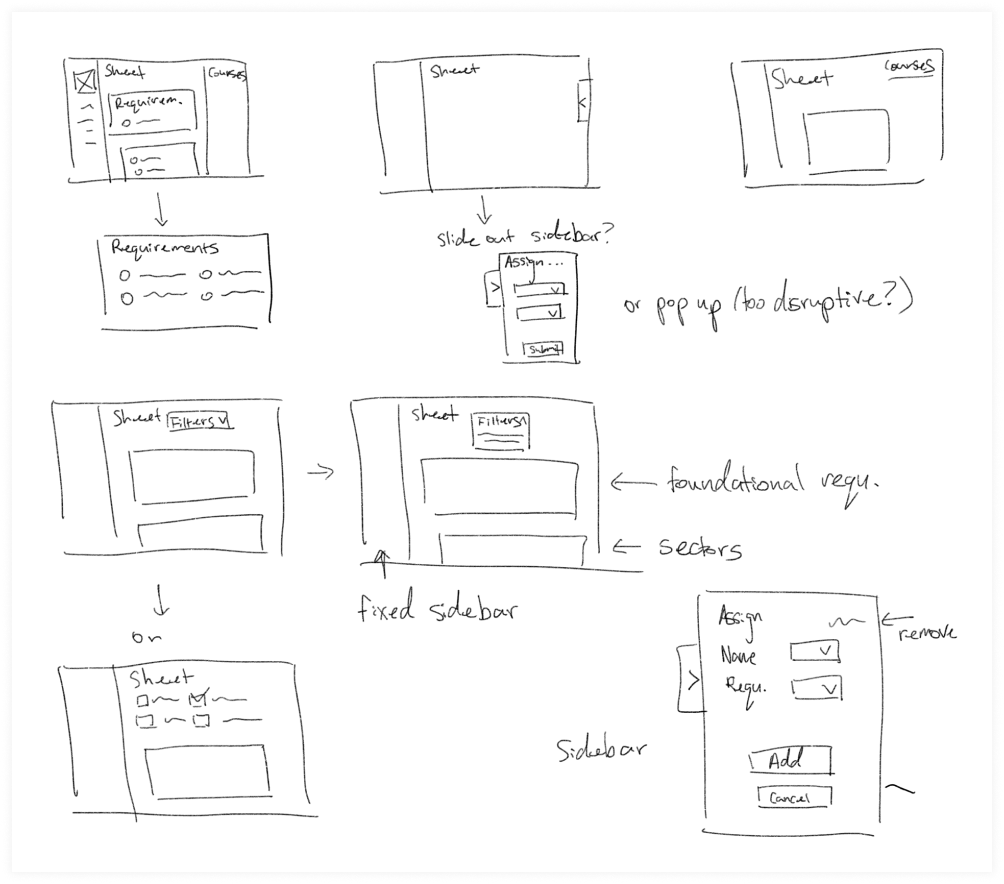 Sheet
Courses
Requirem.
Requirements
Sheet
slide out sidebar?
Assign...
Submit
or pop up (too disruptive?)
Sheet
Courses
Sheet
Filters
Sheet
Filters
foundational requ.
sectors
fixed sidebar
or
Sheet
Sidebar
Assign
remove
Name
Requ.
Add
Cancel